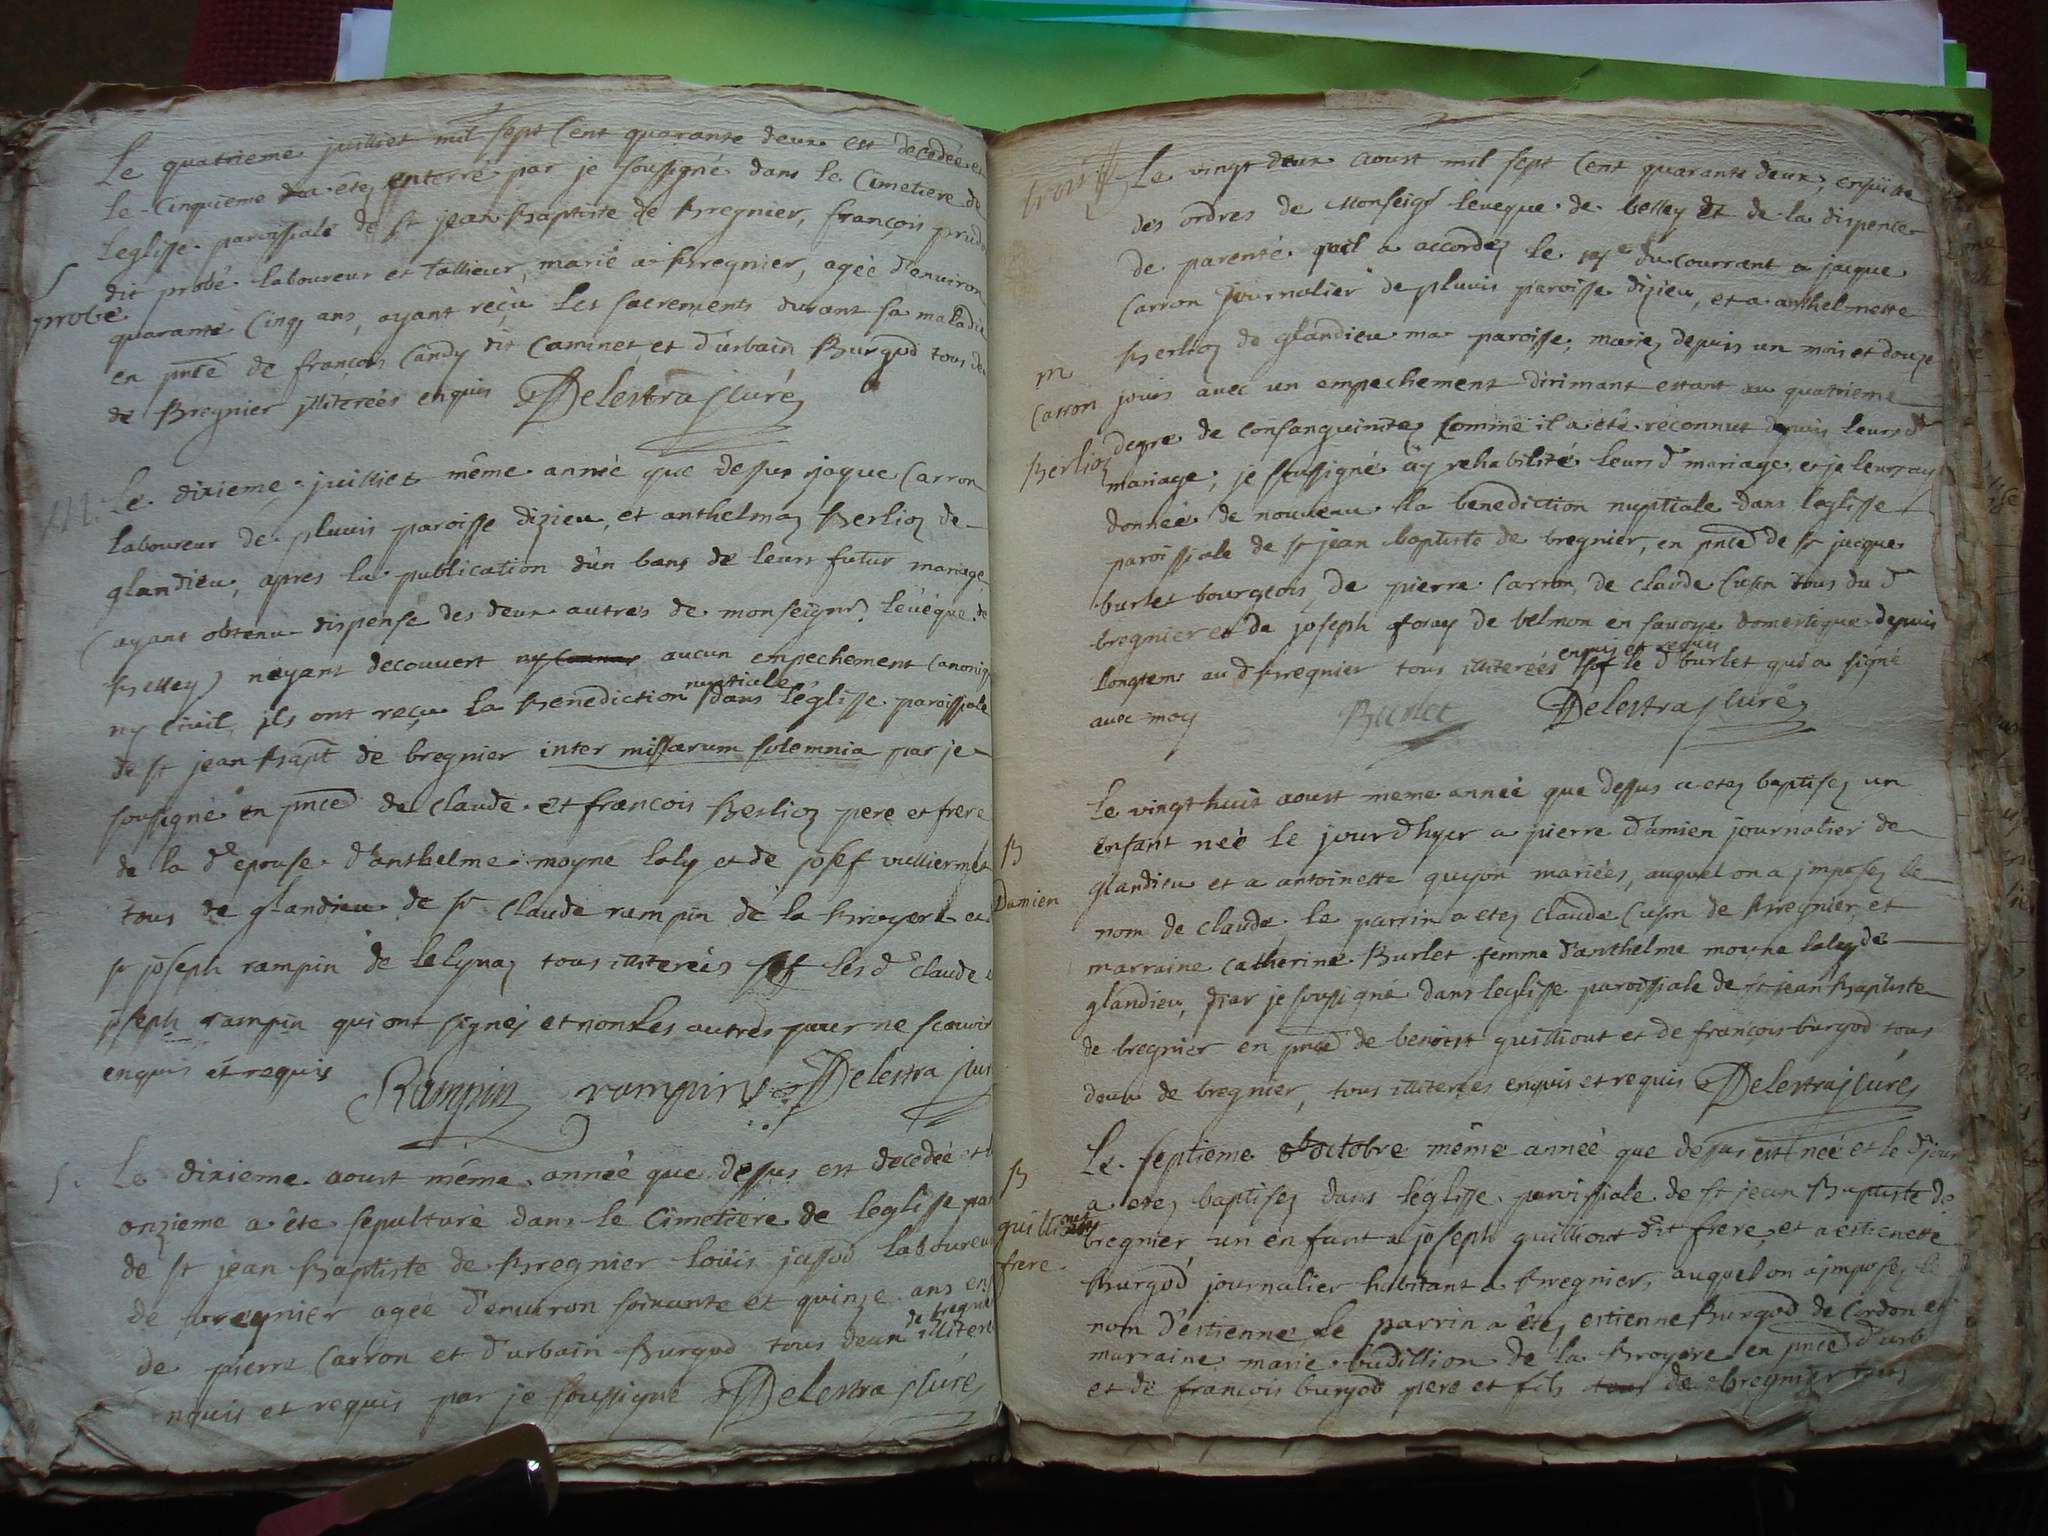 Le quatrieme juilliet mil sept Cent quarante deux est decedée et
le Cinquieme a êtez enterré par je soussigné dans le Cimetiere de
Leglisse paroissiale de st jean Baptiste de Bregnier, françois prud
S
dit probé laboureur et tallieur, marié a Bregnier, agée d'environ
probé
quarante Cinq ans, ayant reçu les sacrements durant sa maladie
en pnce de francois Candy dit Caminet et d'urbain Burgod tous de
de Bregnier illiterées enquis Delestra Curéz
Le dixieme juilliet même année que dessus jaque Carron
laboureur de pluvis paroisse dizieu, et anthelmaz Berlioz de
glandieu, apres la publication d'un bans de leurs futur mariage
(ayant obtenu dispense des deux autres de monseigr. levêque de
Belley) neyant decouvert aucun empechement Canoniq
ny Civil, ils ont reçu la Benediction nuptiale dans léglisse paroissiale
de st jean Bapt de bregnier inter missarum solemnia par je
soussigné en pnce de Claude et francois Berlioz pere et frere
de la d epouse d'anthelme moyne laly et de josef vulliermet
tous de glandieu de sr Claude rampin de la Bruyere et
sr joseph rampin de lelynaz tous illiterées sof les d Claude e
joseph rampin qui ont signéz et non les autres pour ne scavoir
enquis et requis Rampin rampin Delestra Cur
S. Le dixieme aoust même année que dessus est decedée et l
onzieme a éte sepulturé dans le Cimetiere de leglisse par
de st jean Baptiste de Bregnier loüis jassod laboureur
de bregnier agée d'environ soixante et quinze ans en
de pierre Carron et d'urbain Burgod tous deux de bregni illiter
nquis et requis par je soussigné Delestra Curéz
Le vingt deux aoust mil sept Cent quarante deux, ensuitte
des ordres de Monseigr leveque de belley et de la dispence
de parenté quil a accordez le du Courrant a jaque
Carron journalier de pluvis paroisse dizieu, et a anthelmette
Berlioz de glandieu ma paroisse, mariez depuis un mois et douze
m
Carron
jours avec un empechement dirimant estant au quatrieme
Berlioz
degre de Consanguinitez Comme il a été reconnut depuis leurs d
mariage; je soussigné ay rehabilité leurs d mariage et je leurs ay
donnée de nouveau la benediction nuptiale dans leglisse
paroissiale de st jean baptiste de bregnier, en pnce de sr jacque
burlet bourgeois, de pierre Carron, de claude Cusin tous du d
bregnier et de joseph foray de belmon en savoye domestique depuis
longtems au d Bregnier tous illiterées enquis et requis sof le d burlet qui a signé
avec moy Burlet Delestra Curéz
Le vingt huit aoust meme année que dessus a etez baptisez un
B
enfant née le jourdhyer a pierre d'amien journalier de
Damien
glandieu et a antoinette guyon mariées, auquel on a imposez le
nom de claude le parrin a etez claude Cusin de Bregnier et
marraine catherine Burlet femme d'anthelme moyne laly de
glandieu, par je soussigné dans leglisse paroissiale de st jean Baptiste
de bregnier en pnce de benoist guilliout et de francois burgod tous
deux de bregnier, tous illiterées enquis et requis Delestra Curéz
Le septieme octobre même année que dessus est née et le d jour
B
a etez baptisez dans léglisse paroissiale de st jean Baptiste de
bregnier, un enfant a joseph guilliout dit frere, et a estienette
frere
Burgod journalier habitant a Bregnier, auquel on a imposez le
nom d'estienne, le parrin a êtez estienne Burgod de Cordon et
marraine marie budillion de la Bruyere en pnce d'urb
et de francois burgod pere et fils de bregnier tous